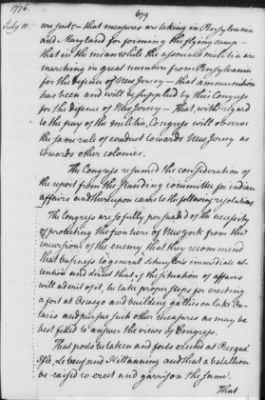 1776.
679
July 11.
are suits — that measures are taking in Pensylvania
and Maryland for forming the flying camp —
that in the mean while the associated militia are
marching in great numbers from Pensylvania
for the defence of New Jersey — that ammunition
has been and will be supplied by this Congress
for the defence of New Jersey — That, with regard
to the pay of the militia, Congress will observe
the same rule of conduct towards New Jersey as
towards other colonies.
The Congress resumed the consideration of
the report from the standing committee for indian
affairs and thereupon came to the following resolutions
The Congress are so fully persuaded of the necessity
of protecting the frontiers of New york from the
incursions of the enemy that they recommend
that business to general Schuyler's immediate at-
tention and direct that if the situation of affairs
will admit of it, he take proper steps for erecting
a fort at Oswego and building gallies on lake On-
tario and pursue such other measures as may be
best fitted to answer the views of Congress.
That posts be taken and posts erected at Presqué
Isle, Le beuf and Kittanning and that a batallion
be raised to erect and garrison the same.
That